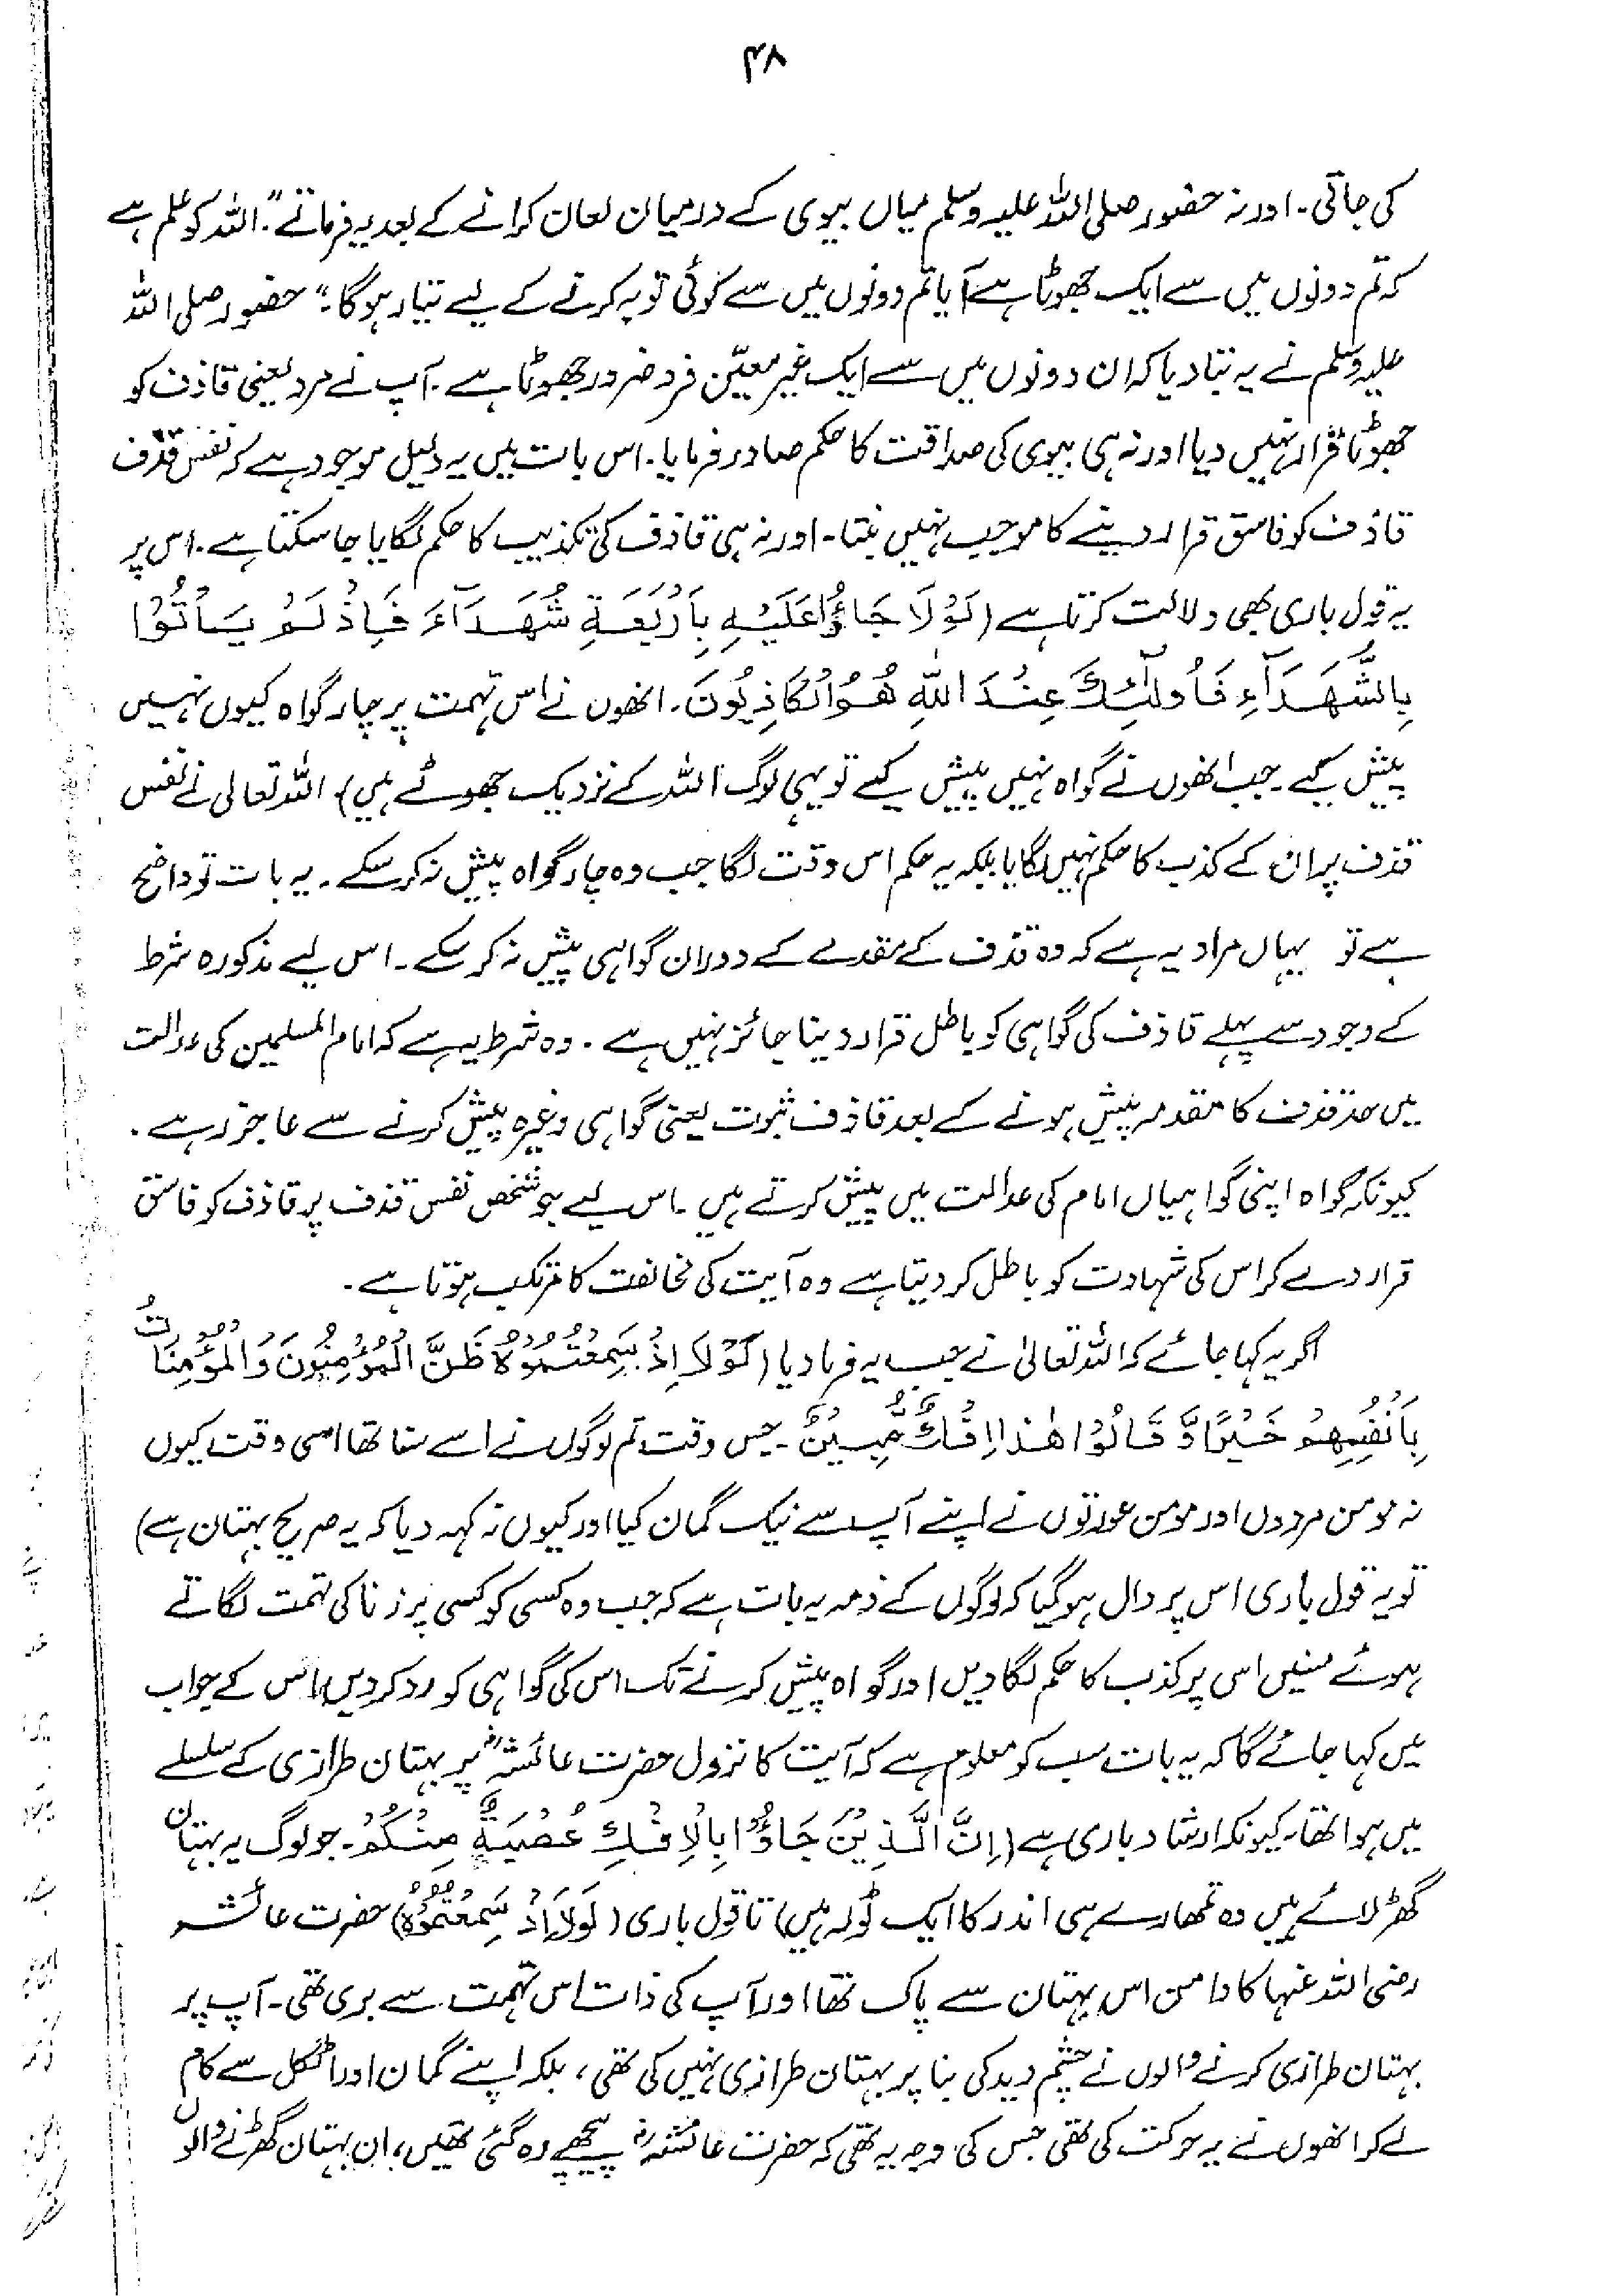 ۴۸
کی جاتی۔ اور نہ حضور صلی اللہ علیہ وسلم میاں بیوی کے درمیان لعان کرانے کے بعد یہ فرماتے "اللہ کو علم ہے
کہ تم دونوں میں سے ایک جھوٹا ہے آیا تم دونوں میں سے کوئی توبہ کرنے کے لیے تیار ہو گا؟" حضور صلی اللہ
علیہ وسلم نے یہ بتا دیا کہ ان دونوں میں سے ایک غیر معیّن فرد ضرور جھوٹا ہے۔ آپ نے مرد یعنی قاذف کو
جھوٹا قرار نہیں دیا اور نہ ہی بیوی کی صداقت کا حکم صادر فرمایا۔ اس بات میں یہ دلیل موجود ہے کہ نفس قذف
قاذف کو فاسق قرار دینے کا موجب نہیں بنتا۔ اور نہ ہی قاذف کی تکذیب کا حکم لگایا جا سکتا ہے۔ اس پر
یہ قول باری بھی دلالت کرتا ہے (لَوْلَا جَاؤُا عَلَيْهِ بِاَرْبَعَةِ شُهَدَآءَ فَاِذْ لَمْ يَاْتُوْا
بِالشُّهَدَآءِ فَاُولٰٓئِكَ عِنْدَ اللّٰهِ هُمُ الْكَاذِبُوْنَ۔ انھوں نے اس تہمت پر چار گواہ کیوں نہیں
پیش کیے۔ جب انھوں نے گواہ نہیں پیش کیے تو یہی لوگ اللہ کے نزدیک جھوٹے ہیں) اللہ تعالیٰ نے نفس
قذف پر ان کے کذب کا حکم نہیں لگایا بلکہ یہ حکم اس وقت لگا جب وہ چار گواہ پیش نہ کر سکے۔ یہ بات تو واضح
ہے تو یہاں مراد یہ ہے کہ وہ قذف کے مقدمے کے دوران گواہی پیش نہ کر سکے۔ اس لیے مذکورہ شرط
کے وجود سے پہلے قاذف کی گواہی کو باطل قرار دینا جائز نہیں ہے۔ وہ شرط یہ ہے کہ امام المسلمین کی عدالت
میں حد قذف کا مقدمہ پیش ہونے کے بعد قاذف ثبوت یعنی گواہی وغیرہ پیش کرنے سے عاجز رہے۔
کیونکہ گواہ اپنی گواہیاں امام کی عدالت میں پیش کرتے ہیں۔ اس لیے جو شخص نفس قذف پر قاذف کو فاسق
قرار دے کر اس کی شہادت کو باطل کر دیتا ہے وہ آیت کی مخالفت کا مرتکب ہوتا ہے۔
اگر یہ کہا جائے کہ اللہ تعالیٰ نے جب یہ فرما دیا (لَوْلَا اِذْ سَمِعْتُمُوْهُ ظَنَّ الْمُؤْمِنُوْنَ وَالْمُؤْمِنَاتُ
بِاَنْفُسِهِمْ خَيْرًا وَّ قَالُوْا هٰذَا اِفْكٌ مُّبِيْنٌ۔ جس وقت تم لوگوں نے اسے سنا تھا اسی وقت کیوں
نہ مومن مردوں اور مومن عورتوں نے اپنے آپ سے نیک گمان کیا اور کیوں نہ کہہ دیا کہ یہ صریح بہتان ہے)
تو یہ قول باری اس پر دال ہو گیا کہ لوگوں کے ذمہ یہ بات ہے کہ جب وہ کسی کو کسی پر زنا کی تہمت لگاتے
ہوئے سنیں اس پر کذب کا حکم لگا دیں اور گواہ پیش کرنے تک اس کی گواہی کو رد کر دیں، اس کے جواب
میں کہا جائے گا کہ یہ بات سب کو معلوم ہے کہ آیت کا نزول حضرت عائشہؓ پر بہتان طرازی کے سلسلے
میں ہوا تھا۔ کیونکہ ارشاد باری ہے (اِنَّ الَّذِيْنَ جَاؤُا بِالْاِفْكِ عُصْبَةٌ مِنْكُمْ۔ جو لوگ یہ بہتان
گھڑ لائے ہیں وہ تمھارے ہی اندر کا ایک ٹولہ ہیں) تا قول باری (لَوْلَا اِذْ سَمِعْتُمُوْهُ) حضرت عائشہ
رضی اللہ عنہا کا دامن اس بہتان سے پاک تھا اور آپ کی ذات اس تہمت سے بری تھی۔ آپ پر
بہتان طرازی کرنے والوں نے چشم دید کی بنا پر بہتان طرازی نہیں کی تھی، بلکہ اپنے گمان اور اٹکل سے کام
لے کر انھوں نے یہ حرکت کی تھی جس کی وجہ یہ تھی کہ حضرت عائشہؓ پیچھے رہ گئی تھیں، ان بہتان گھڑنے والوں